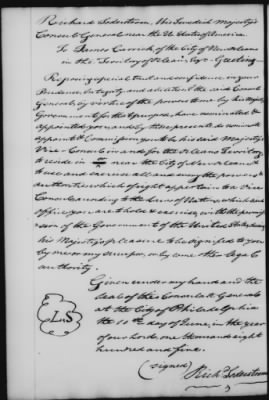 Richard Soderstrom, His Swedish Majesty's
Consul General near the U. States of America.
To James Carrick of the City of New Orleans
in the Territory of Orleans, Esqr. Greeting.
Reposing special trust and confidence in your
Prudence, Integrity and abilities I the said Consul
General by virtue of the powers to me by his Majesty's
Government for the purpose, have nominated &
appointed you and by these presents do nominate
appoint & Commission you to be his said Majesty's
Vice-Consul in and for the Orleans Territory
to reside in or near the City of New Orleans
to use and exercise all and every the powers &
authorities which of right appertain to a Vice
Consul according to the Law of Nations, which said
office you are to hold & exercise with the permis-
sion of the Government of the United States during
his Majesty's pleasure to be signified to you
by me or my successor, or by some other legal
authority.
Given under my hand and the
Seal of the Consulate General
at the City of Philadelphia
the 11th day of June, in the year
of our Lord one thousand eight
hundred and five.
L.S
(signed)
Rich. Soderstrom